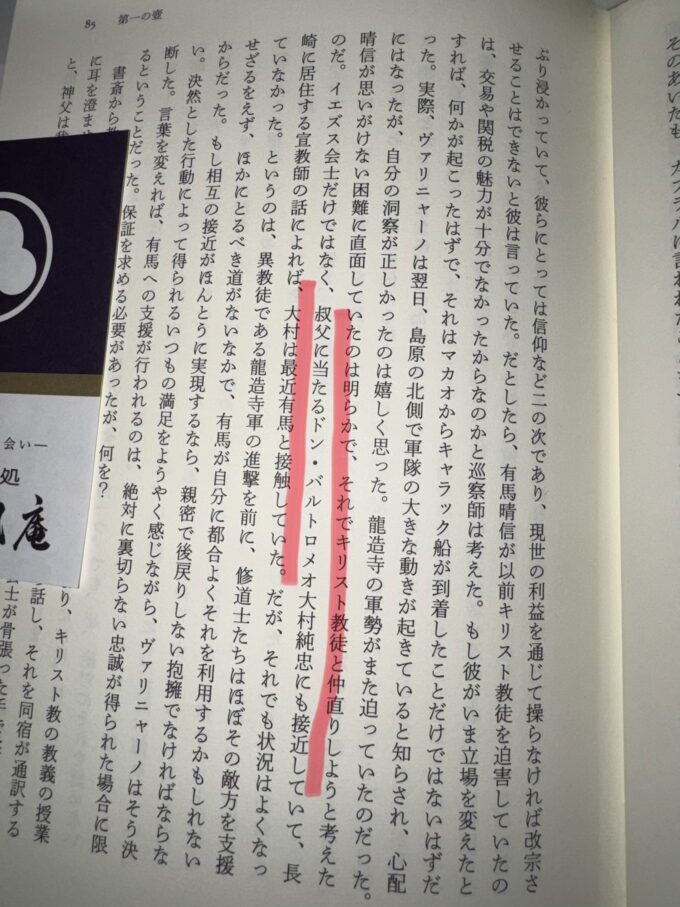 85 第一の壺
ぶり浸かっていて、彼らにとっては信仰など二の次であり、現世の利益を通じて操らなければ改宗さ
せることはできないと彼は言っていた。だとしたら、有馬晴信が以前キリスト教徒を迫害していたの
は、交易や関税の魅力が十分でなかったからなのかと巡察師は考えた。もし彼がいま立場を変えたと
すれば、何かが起こったはずで、それはマカオからキャラック船が到着したことだけではないはずだ
った。実際、ヴァリニャーノは翌日、島原の北側で軍隊の大きな動きが起きていると知らされ、心配
にはなったが、自分の洞察が正しかったのは嬉しく思った。龍造寺の軍勢がまた迫っていたのだった。
晴信が思いがけない困難に直面していたのは明らかで、それでキリスト教徒と仲直りしようと考えた
のだ。イエズス会士だけではなく、叔父に当たるドン・バルトロメオ大村純忠にも接近していて、長
崎に居住する宣教師の話によれば、大村は最近有馬と接触していた。だが、それでも状況はよくなっ
ていなかった。というのは、異教徒である龍造寺軍の進撃を前に、修道士たちはほぼその敵方を支援
せざるをえず、ほかにとるべき道がないなかで、有馬が自分に都合よくそれを利用するかもしれない
からだった。もし相互の接近がほんとうに実現するなら、親密で後戻りしない抱擁でなければならな
い。決然とした行動によって得られるいつもの満足をようやく感じながら、ヴァリニャーノはそう決
断した。言葉を変えれば、有馬への支援が行われるのは、絶対に裏切らない忠誠が得られた場合に限
るということだった。保証を求める必要があったが、何を？
書斎から り、キリスト教の教義の授業
に耳を澄ま 話し、それを同宿が通訳する
と、神父は 士が骨張った
会い―
処
庵